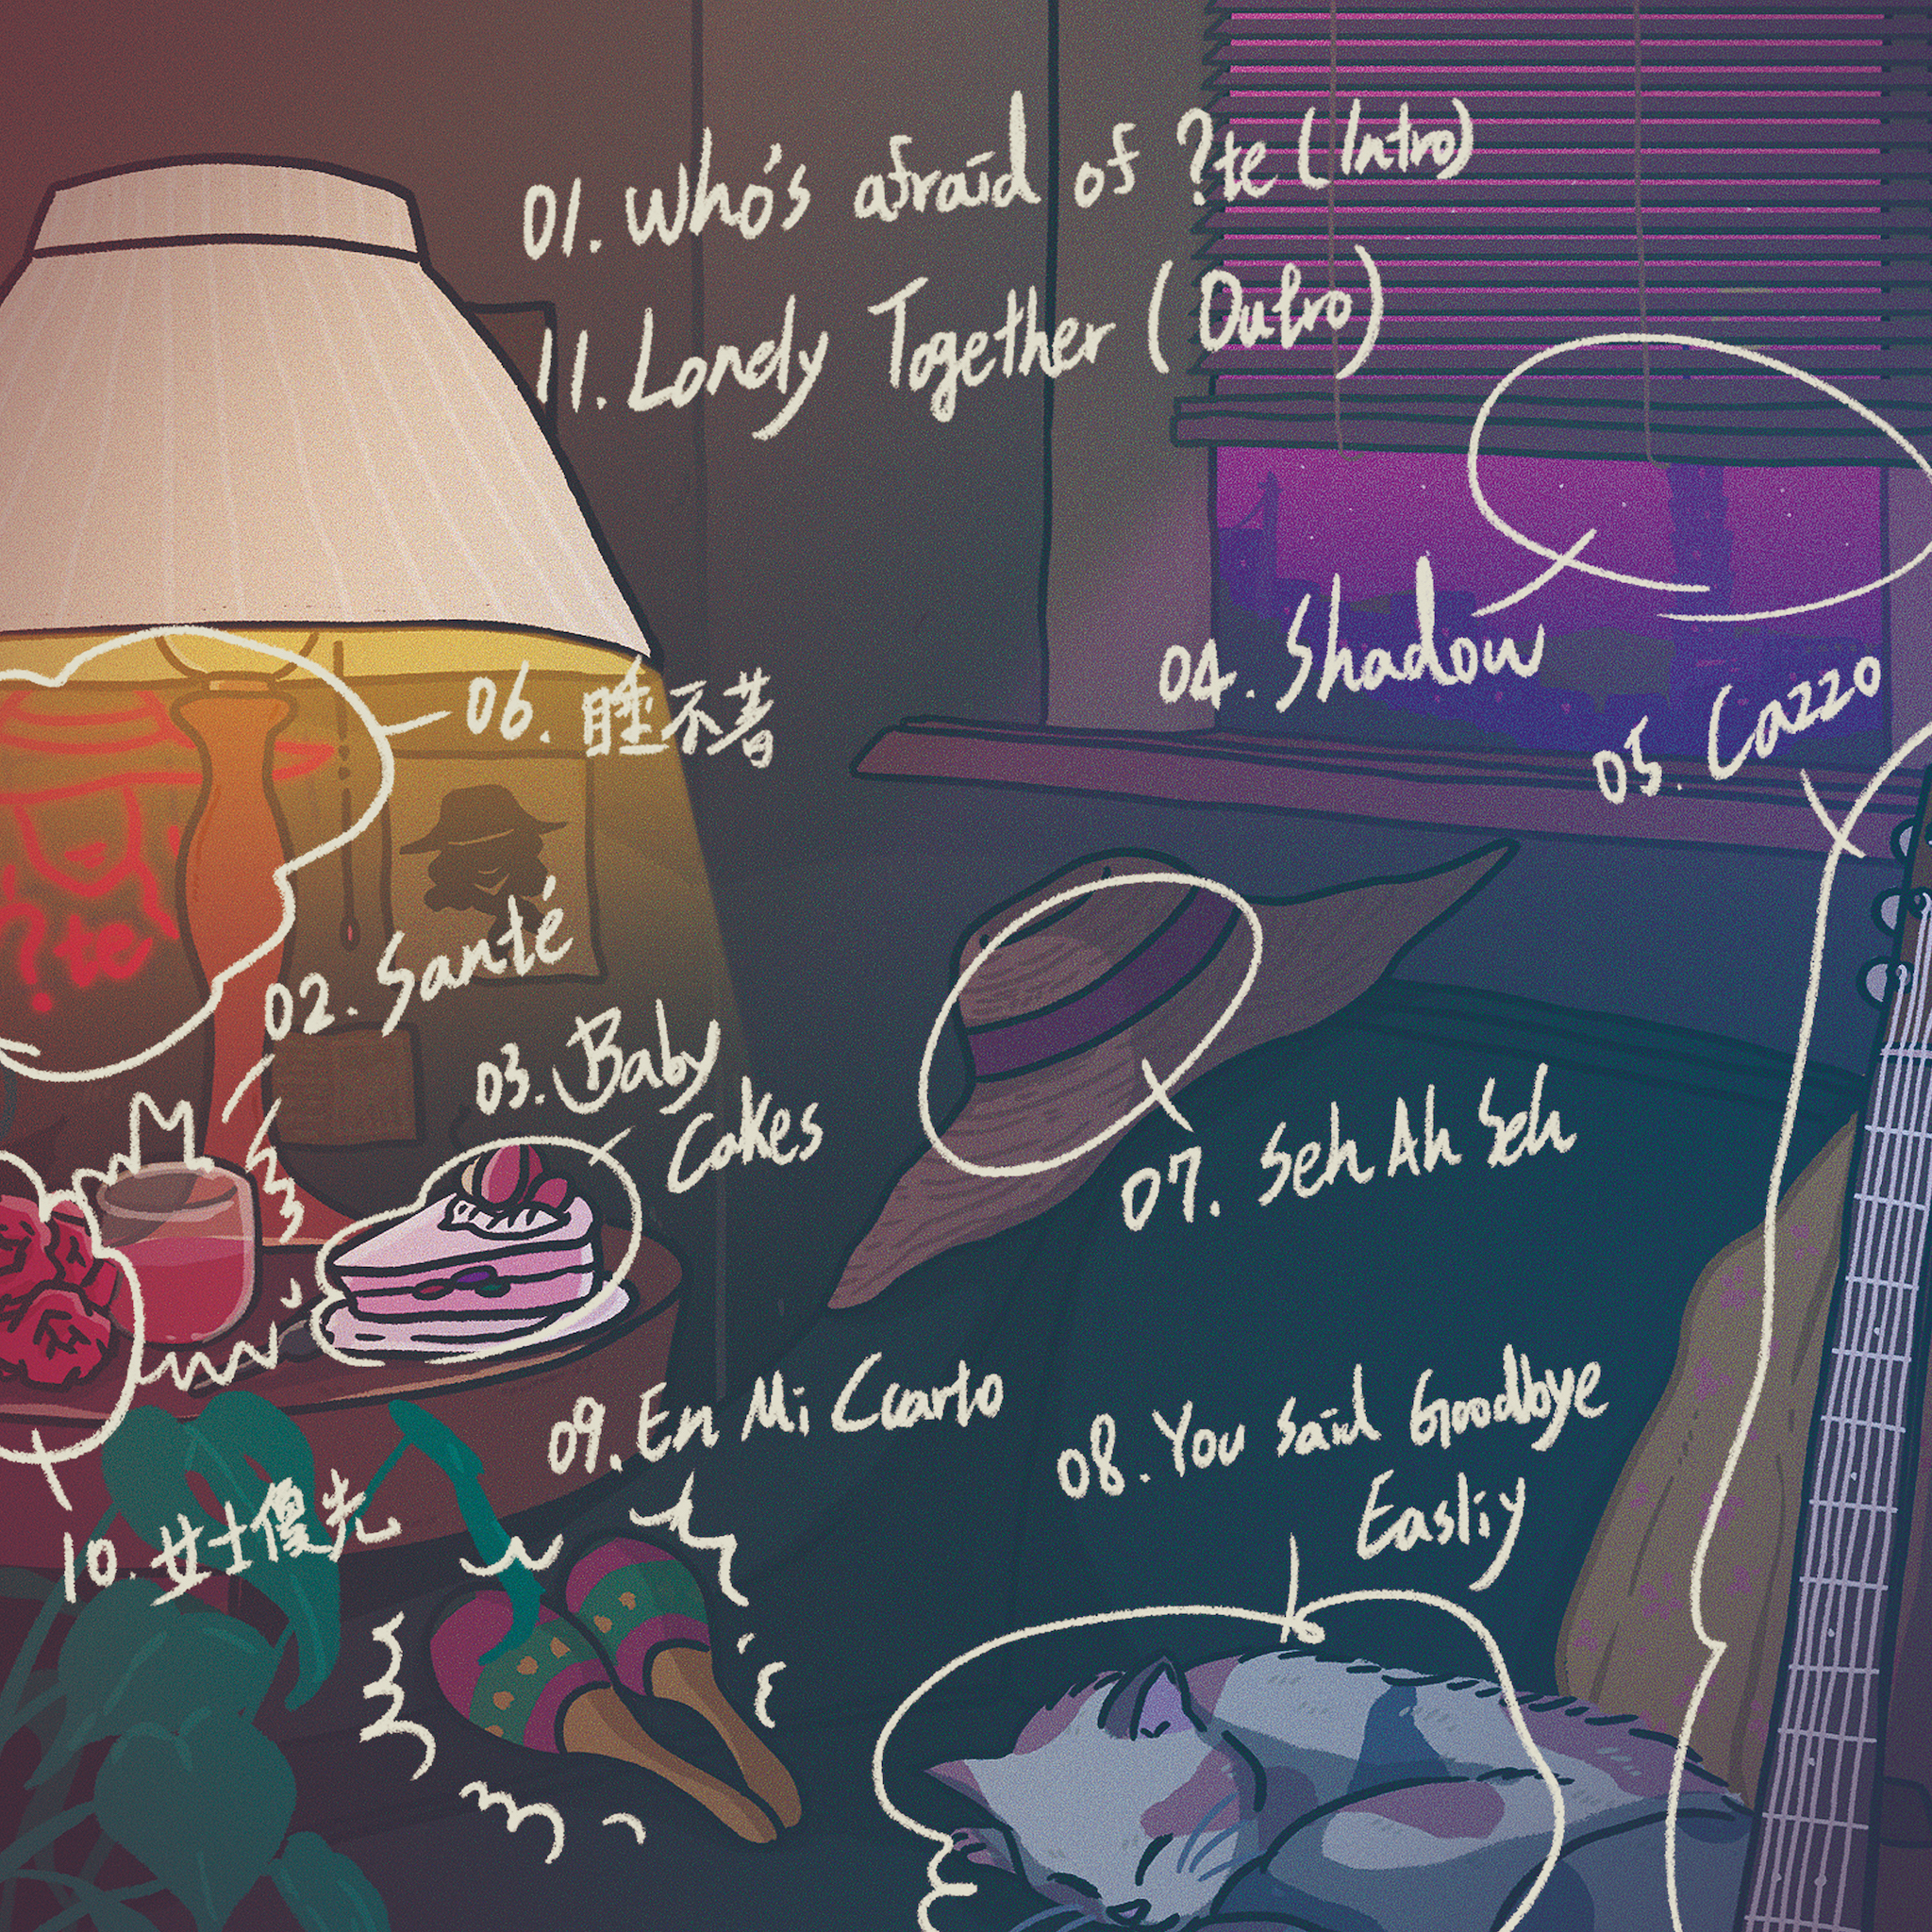 01. Who's afraid of ?te (Intro)
11. Lonely Together (Outro)
04. Shadow
05. Cazzo
06. 睡不著
?te
02. Santé
03. Baby
Cakes
07. Seh Ah Seh
09. En Mi Cuarto
08. You Said Goodbye
Easliy
10. 女士傻先